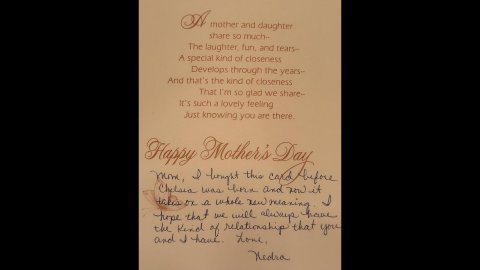 A mother and daughter
share so much--
The laughter, fun, and tears--
A special kind of closeness
Develops through the years--
And that's the kind of closeness
That I'm so glad we share--
It's such a lovely feeling
Just knowing you are there.
Happy Mother's Day
Mom, I bought this card before
Chelsia was born and now it
takes on a whole new meaning. I
hope that we will always have
the kind of relationship that you
and I have. Love,
Nedra